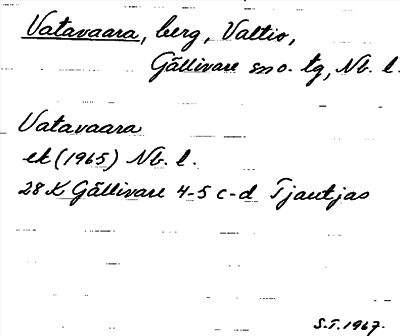 Vatavaara, berg, Valtio,
Gällivare sno. tg, Nb. l.
Vatavaara
ek (1965) Nb. l.
28 K Gällivare 4-5 c-d Tjautjas
S.T. 1967.